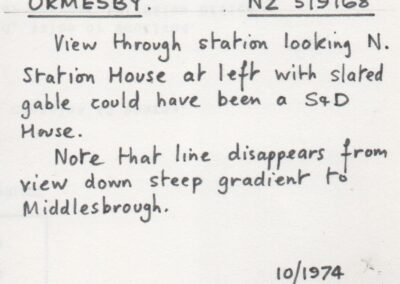 ORMESBY. NZ 519168
View through station looking N.
Station House at left with slated
gable could have been a S&D
House.
Note that line disappears from
view down steep gradient to
Middlesbrough.
10/1974